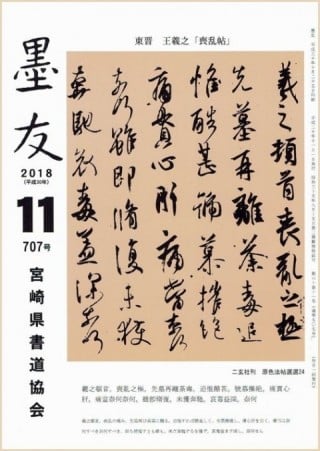 東晋 王羲之「喪乱帖」
墨友
2018
(平成30年)
11
707号
宮崎県書道協会
羲之頓首喪亂之極
先墓再離荼毒追
惟酷甚號慕摧絶
痛貫心肝痛當奈何
奈何雖即脩復未獲
奔馳哀毒益深奈何
二玄社刊 原色法帖選24
羲之頓首、喪亂之極、先墓再離荼毒、追惟酷甚、號慕摧絶、痛貫心
肝、痛當奈何奈何、雖即脩復、未獲奔馳、哀毒益深、奈何